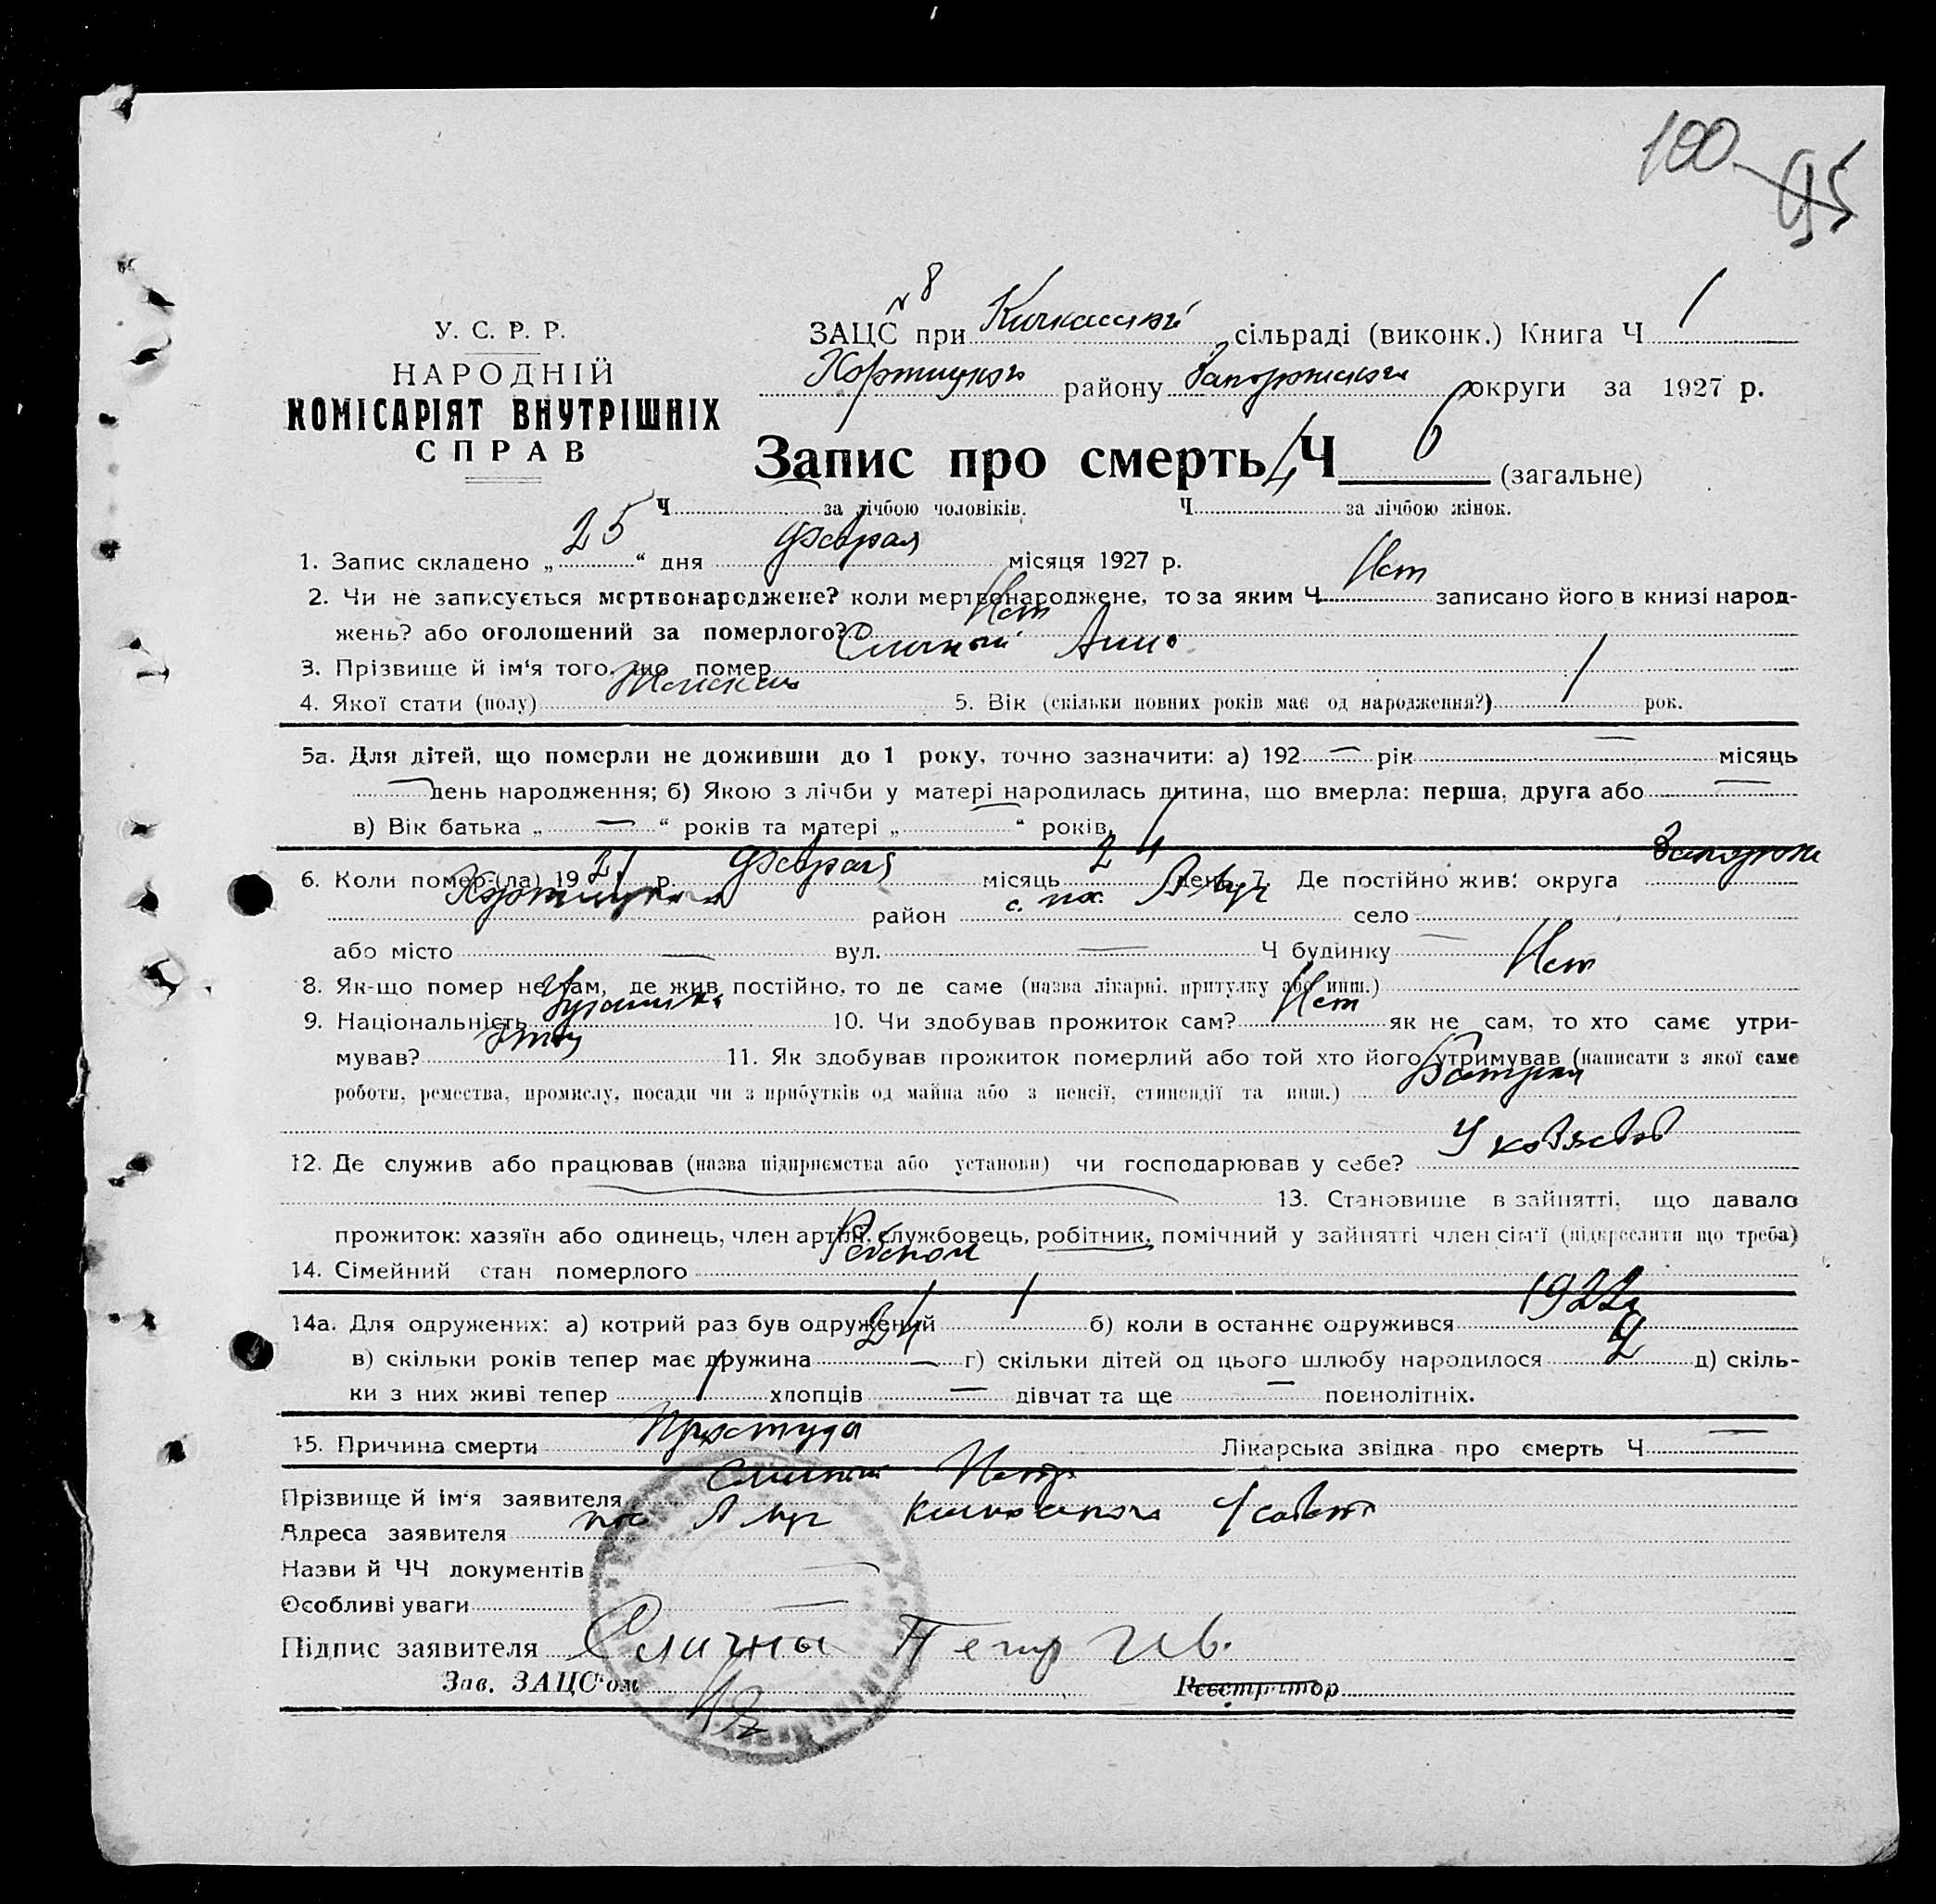 100 95
№ 8
У. С. Р. Р.
НАРОДНІЙ
КОМІСАРІЯТ ВНУТРІШНІХ
СПРАВ
ЗАЦС при Кичкасский сільраді (виконк.) Книга Ч 1
Хортицкого району Запорожского округи за 1927 р.
Запис про смерть Ч 6 (загальне)
Ч за лічбою чоловіків. Ч за лічбою жінок.
1. Запис складено „ 25 “ дня Февраля місяця 1927 р.
2. Чи не записується мертвонароджене? коли мертвонароджене, то за яким Ч Нет записано його в книзі народ-
жень? або оголошений за померлого? Нет
3. Прізвище й ім'я того, що помер Сличный Анна
4. Якої стати (полу) Женский 5. Вік (скільки повних років має од народження?) 1 рок.
5а. Для дітей, що померли не доживши до 1 року, точно зазначити: а) 192 — рік — місяць
— день народження; б) Якою з лічби у матері народилась дитина, що вмерла: перша, друга або —
в) Вік батька „ — “ років та матері „ — “ років.
6. Коли помер-(ла) 1927 р. Февраля місяць 24 день 7. Де постійно жив: округа Запорож
Хортицкого район с. пос. село
або місто — вул. — Ч будинку —
8. Як-що помер не там, де жив постійно, то де саме (назва лікарні, притулку або инш.) Нет
9. Національність 10. Чи здобував прожиток сам? Нет як не сам, то хто саме утри-
мував? Отец 11. Як здобував прожиток померлий або той хто його утримував (написати з якої саме
роботи, ремества, промислу, посади чи з прибутків од майна або з пенсії, стипендії та инш.) Батрак
12. Де служив або працював (назва підприємства або установи) чи господарював у себе? У
13. Становище в зайнятті, що давало
прожиток: хазяїн або одинець, член артілі, службовець, робітник, помічний у зайнятті член сім'ї (підкреслити що треба)
14. Сімейний стан померлого
14а. Для одружених: а) котрий раз був одружений 1 б) коли в останнє одружився 1922
в) скільки років тепер має дружина 24 — г) скільки дітей од цього шлюбу народилося 2 д) скіль-
ки з них живі тепер 1 хлопців — дівчат та ще — повнолітніх.
15. Причина смерти Простуда Лікарська звідка про смерть Ч —
Прізвище й ім'я заявителя Сличный Петр
Адреса заявителя пос Кичкасского
Назви й ЧЧ документів —
Особливі уваги —
Підпис заявителя Сличны Петр Ив.
Зав. ЗАЦС'ом Реєстратор